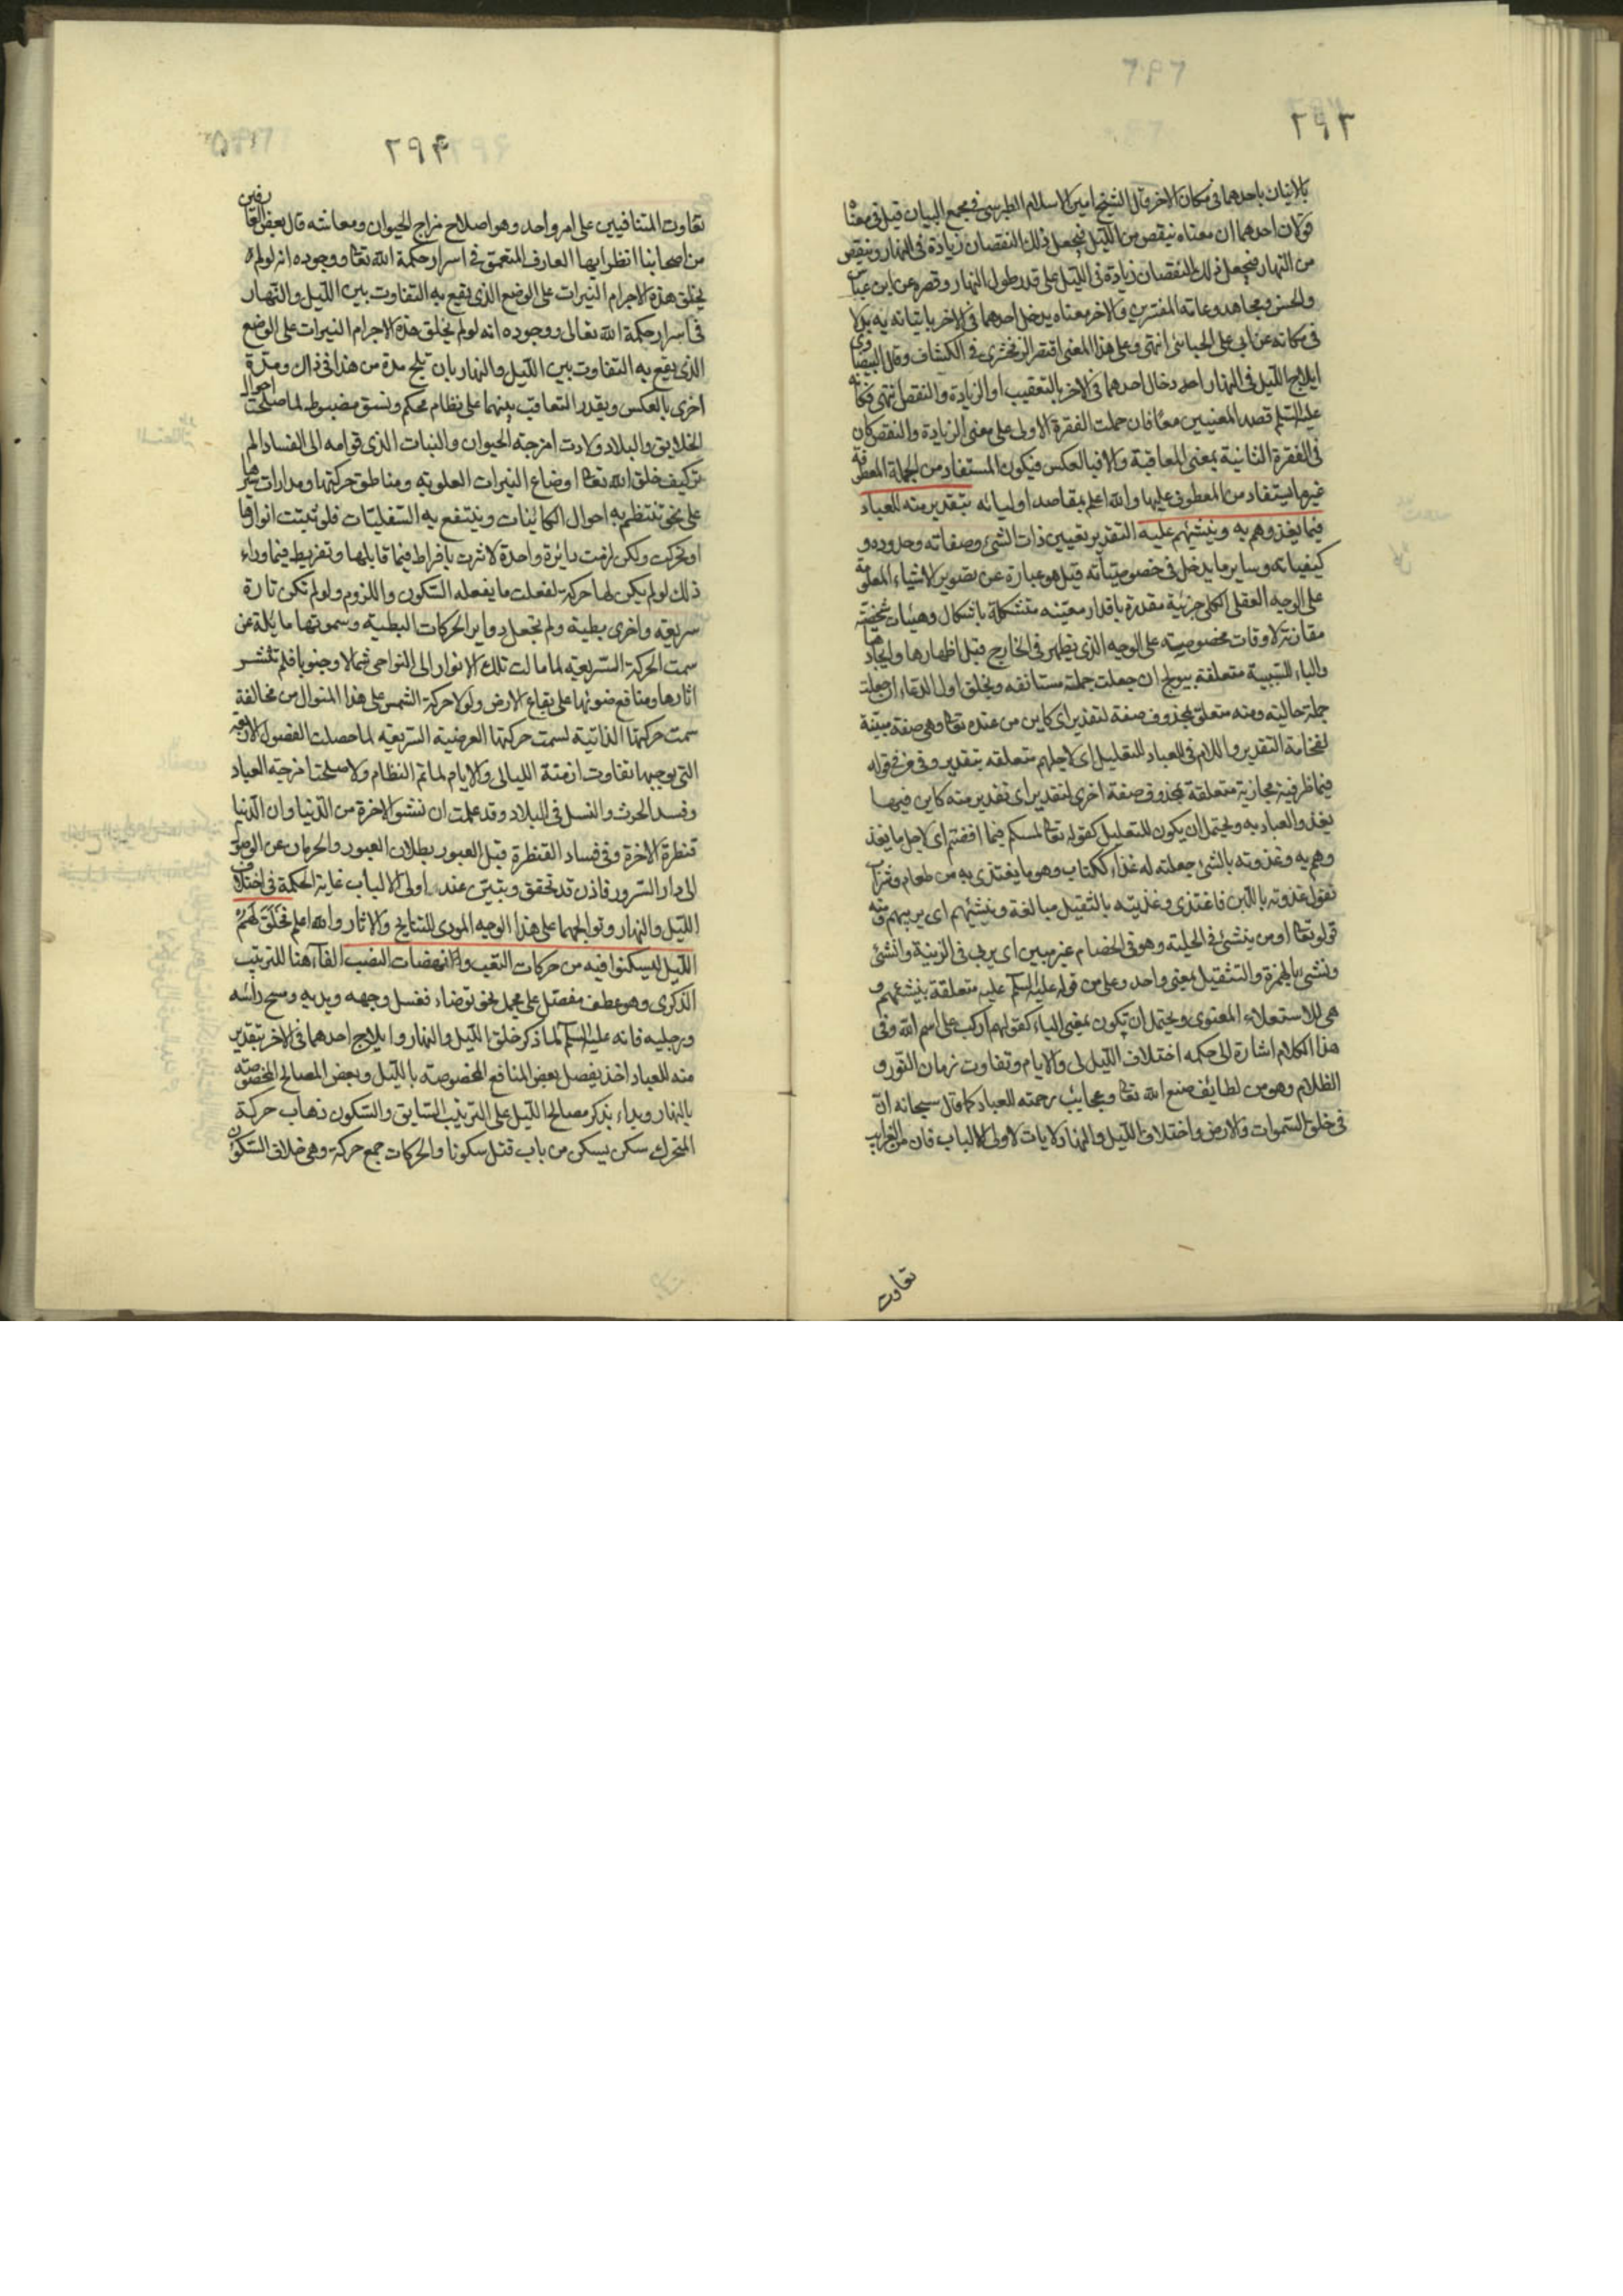 ٢٩٣
بالاتيان باحدهما فى مكان الاخر قال الشيخ امين الاسلام الطبرسى فى مجمع البيان قيل فى معناه
قولان احدهما ان معناه ينقص من الليل فيجعل ذلك النقصان زيادة فى النهار وينقص
من النهار فيجعل ذلك النقصان زيادة فى الليل على قدر طول النهار وقصره عن ابن عباس
والحسن ومجاهد وعامة المفسرين والاخر معناه يدخل احدهما فى الاخر باتيانه به بدلا
فى مكانه عن ابى على الجبائى انتهى وعلى هذا المعنى اقتصر الزمخشرى فى الكشاف وقال البيضاوى
ايلاج الليل فى النهار ادخال احدهما فى الاخر بالتعقيب او الزيادة والنقص انتهى فكانه
عليه السلم قصد المعنيين معا فان حملت الفقرة الاولى على معنى الزيادة والنقص كان
فى الفقرة الثانية بمعنى المعاقبة والا فبالعكس فيكون المستفاد من الجملة المعطوفة
غير ما يستفاد من المعطوف عليها والله اعلم بمقاصد اوليائه بتقدير منه للعباد
فيما يغذوهم به وينشئهم عليه التقدير تعيين ذات الشئ وصفاته وحدوده و
كيفياته وساير ما يدخل فى خصوصياته قيل هو عبارة عن تصوير الاشياء المعلومة
على الوجه العقلى الكلى جزئية مقدرة باقدار معينه متشكلة باشكال وهيئات شخصية
مقارنة لاوقات مخصوصة على الوجه الذى يظهر فى الخارج قبل اظهارها وايجادها
والباء للسببية متعلقة بيولج ان جعلت جملته مستانفه وبخلق اول الدعاء ان جعلت
جملة حاليته ومنه متعلق بمحذوف صفة لتقدير اى كاين من عنده تعالى وهى صفة مبينة
لفخامة التقدير واللام فى للعباد للتعليل اى لاجلهم متعلقه بتقدير وفى فى قوله
فيما ظرفية مجازية متعلقة بمحذوف صفة اخرى لتقدير اى تقدير منه كاين فيما
يغذو العباد به ويحتمل ان يكون للتعليل كقوله تعالى لمسكم فيما افضتم اى لاجل ما يغذ
وهم به وغذوته بالشئ جعلته له غذاء ككتاب وهو ما يغتذى به من طعام وشراب
تقول غذوته باللبن فاغتذى وغذيته بالتثقيل مبالغة وينشئهم اى يربيهم ومنه
قوله تعالى اومن ينشئ فى الحلية وهو فى الخصام غير مبين اى يربى فى الزينة وانشئ
ونشئ بالهمزة والتثقيل بمعنى واحد وعلى من قوله عليه السلم عليه متعلقة بينشئهم و
هى للاستعلاء المعنوى ويحتمل ان يكون بمعنى الباء كقولهم اركب على اسم الله وفى
هذا الكلام اشارة الى حكمه اختلاف الليالى والايام وتفاوت زمان النور و
الظلام وهو من لطايف صنع الله تعالى وعجايب رحمته للعباد كما قال سبحانه ان
فى خلق السموات والارض واختلاف الليل والنهار لايات لاولى الالباب فان من الغرايب
تفاوت
٢٩٤
تفاوت المتنافيين على امر واحد وهو اصلاح مزاج الحيوان ومعاشه قال بعض العارفين
من اصحابنا انظر ايها العارف المتعمق فى اسرار حكمة الله تعالى ووجوده انه لو لم
يخلق هذه الاجرام النيرات على الوضع الذى يقع به التفاوت بين الليل والنهار
فى اسرار حكمة الله تعالى ووجوده انه لو لم يخلق هذه الاجرام النيرات على الوضع
الذى يقع به التفاوت بين الليل والنهار بان يلج مدة من هذا فى ذاك ومدة
اخرى بالعكس ويقدر التعاقب بينهما على نظام محكم ونسق مضبوط لما صلحت احوال
الخلايق والبلاد ولادت امزجة الحيوان والنبات الذى قوامه الى الفساد الم
تر كيف خلق الله تعالى اوضاع النيرات العلوية ومناطق حركتها ومدارات سيرها
على نحو تنتظم به احوال الكائنات وينتفع به السفليات فلو ثبتت انوارها
او تحركت ولكن لزمت دائرة واحدة لاثرت بافراط فيما قابلها وتفريط فيما وراء
ذلك لو لم يكن لها حركة لفعلت ما يفعله السكون واللزوم ولو لم تكن تارة
سريعة واخرى بطيئة ولم تجعل دواير الحركات البطيئة وسموتها مايلة عن
سمت الحركة السريعة لما مالت تلك الانوار الى النواحى شمالا وجنوبا فلم تنتشر
اثارها ومنافع ضوئها على بقاع الارض ولولا حركة الشمس على هذا المنوال من مخالفة
سمت حركتها الذاتية لسمت حركتها العرضية السريعة لما حصلت الفصول الاربعة
التى يوجبها تفاوت ازمنة الليالى والايام لما تم النظام ولا صلحت امزجة العباد
وفسد الحرث والنسل فى البلاد وقد علمت ان نشو الاخرة من الدنيا وان الدنيا
قنطرة الاخرة وفى فساد القنطرة قبل العبور بطلان العبور والحرمان عن الوصول
الى دار السرور فاذن قد تحقق وتبين عند اولى الالباب غاية الحكمة فى اختلاف
الليل والنهار وتوالجهما على هذا الوجه المودى للنتايج والاثار والله اعلم فخلق لهم
الليل ليسكنوا فيه من حركات التعب ونهضات النصب الفاء هنا للترتيب
الذكرى وهو عطف مفصل على مجمل نحو توضاء فغسل وجهه ويديه ومسح راسه
ورجليه فانه عليه السلم لما ذكر خلق الليل والنهار وايلاج احدهما فى الاخر بتقدير
منه للعباد اخذ يفصل بعض المنافع المخصوصة بالليل وبعض المصالح المخصوصة
بالنهار وبداء بذكر مصالح الليل على الترتيب السابق والسكون ذهاب حركة
المتحرك سكن يسكن من باب قتل سكونا والحركات جمع حركة وهى خلاف السكون